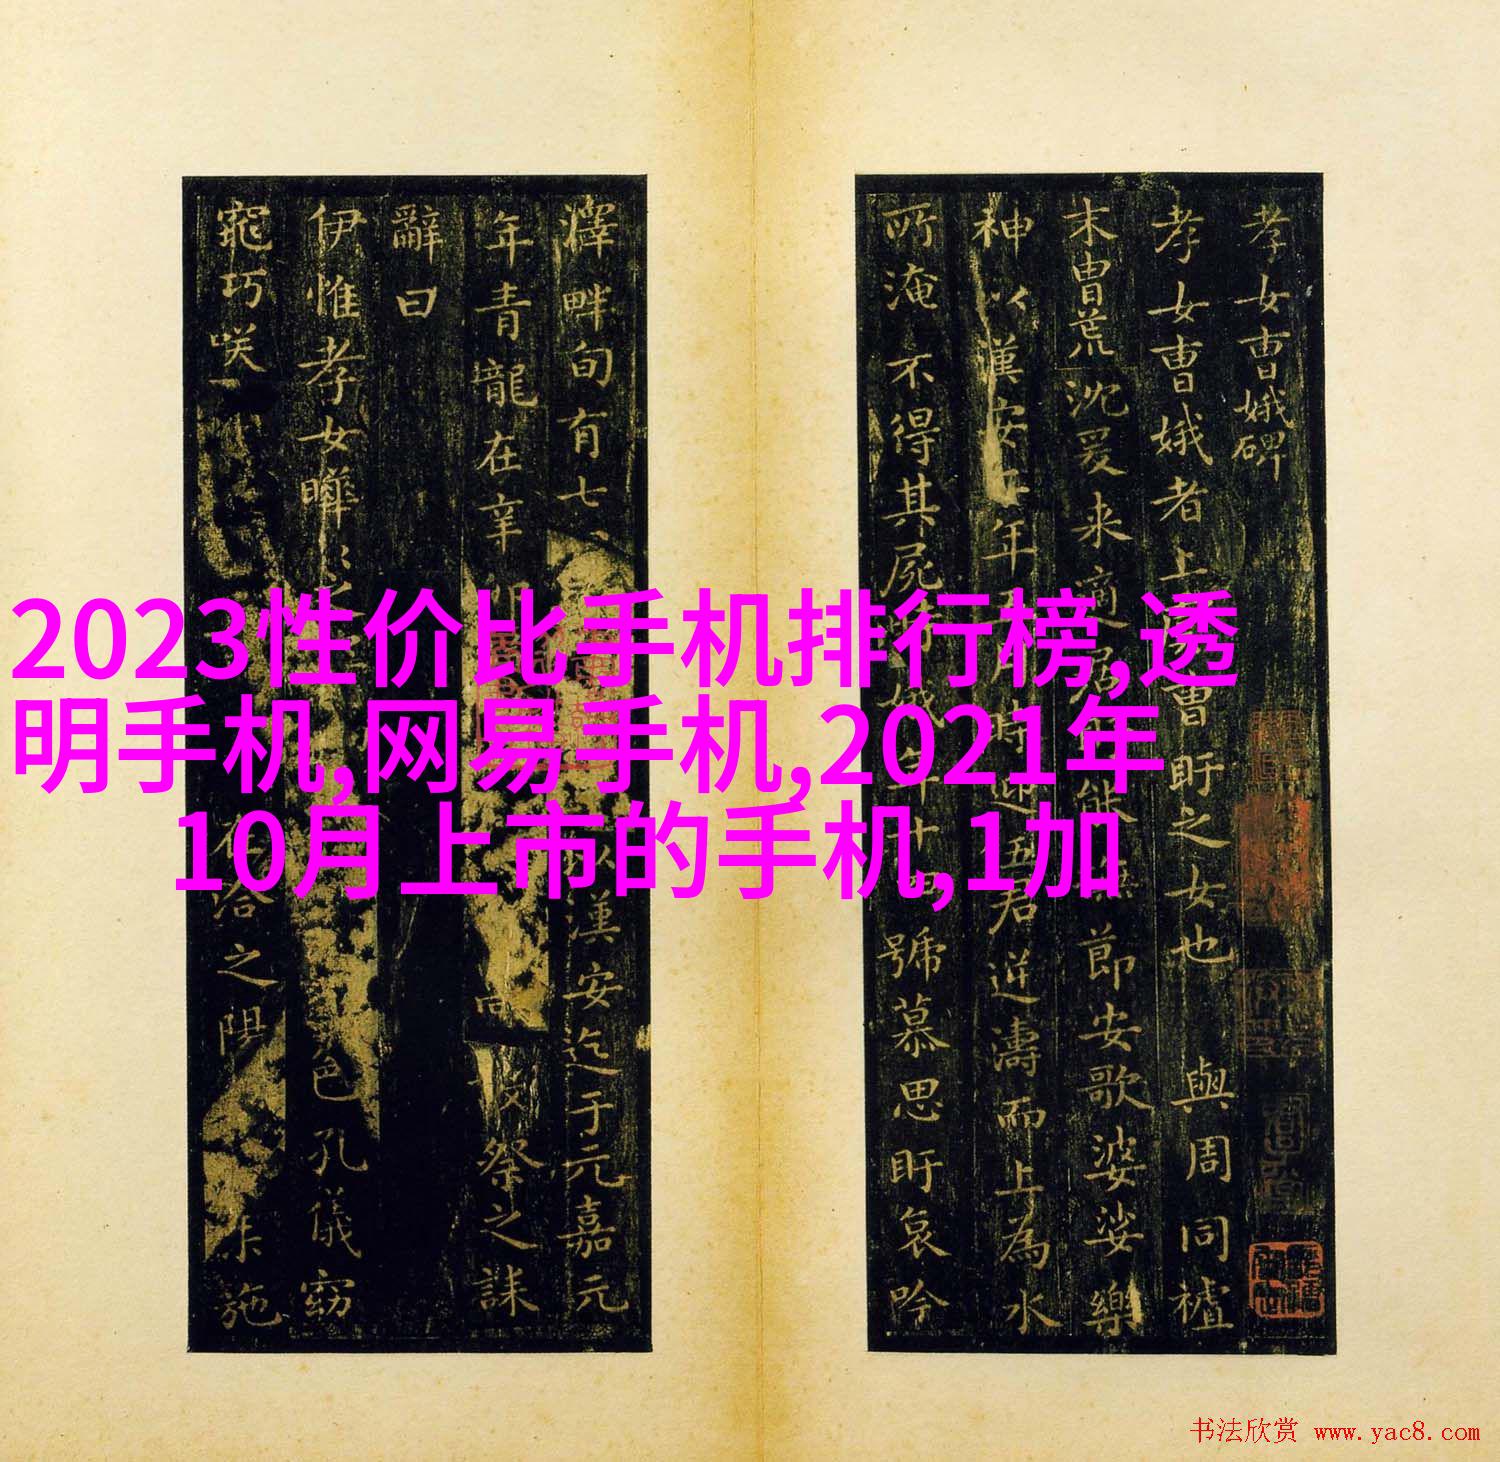 2023性价比手机排行榜,透
明手机,网易手机,2021年
10月上市的手机,1加
孝女曹娥碑
孝女曹娥者上虞曹盱之女也 與周同褴
末胄荒沈爰来適居 能 節安歌婆娑樂
神以漢安二年五月時迎五君逆濤而上為水
所淹不得其屍時娥年十四號慕思盱哀吟
澤畔旬有七 漢安迄于元嘉元
年青龍在辛卯 祭之誄
辭曰
伊惟孝女曄 之 色孔儀窈
窕巧咲 洽之陽 施
书法欣赏 www.yac8.com